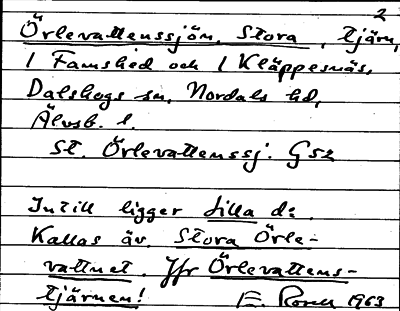 2
Örlevattenssjön, Stora, tjärn,
1 Famshed och 1 Kläppesnäs,
Dalskogs sn, Nordals hd,
Älvsb. l.
St. Örlevattenssj. G52
Intill ligger Lilla d:o
Kallas äv. Stora Örle-
vattnet. Jfr Örlevattens-
tjärnen! E. 1963